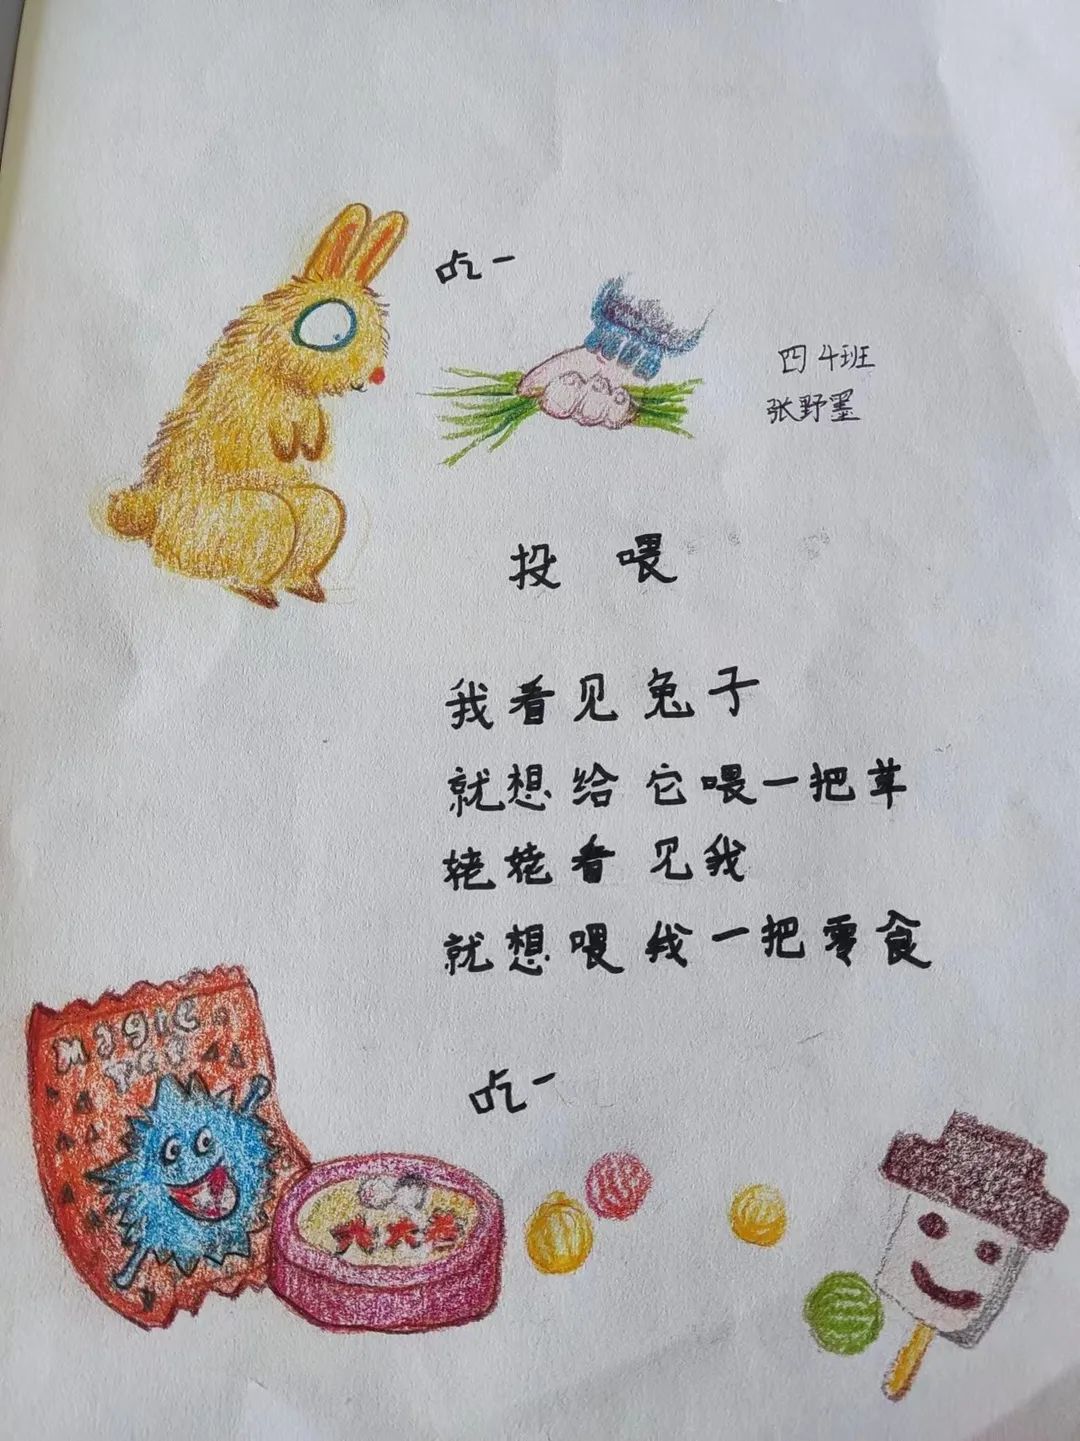 吃一
四4班
张野墨
投 喂
我看见兔子
就想给它喂一把草
姥姥看见我
就想喂我一把零食
吃一
MAGIC
大大卷